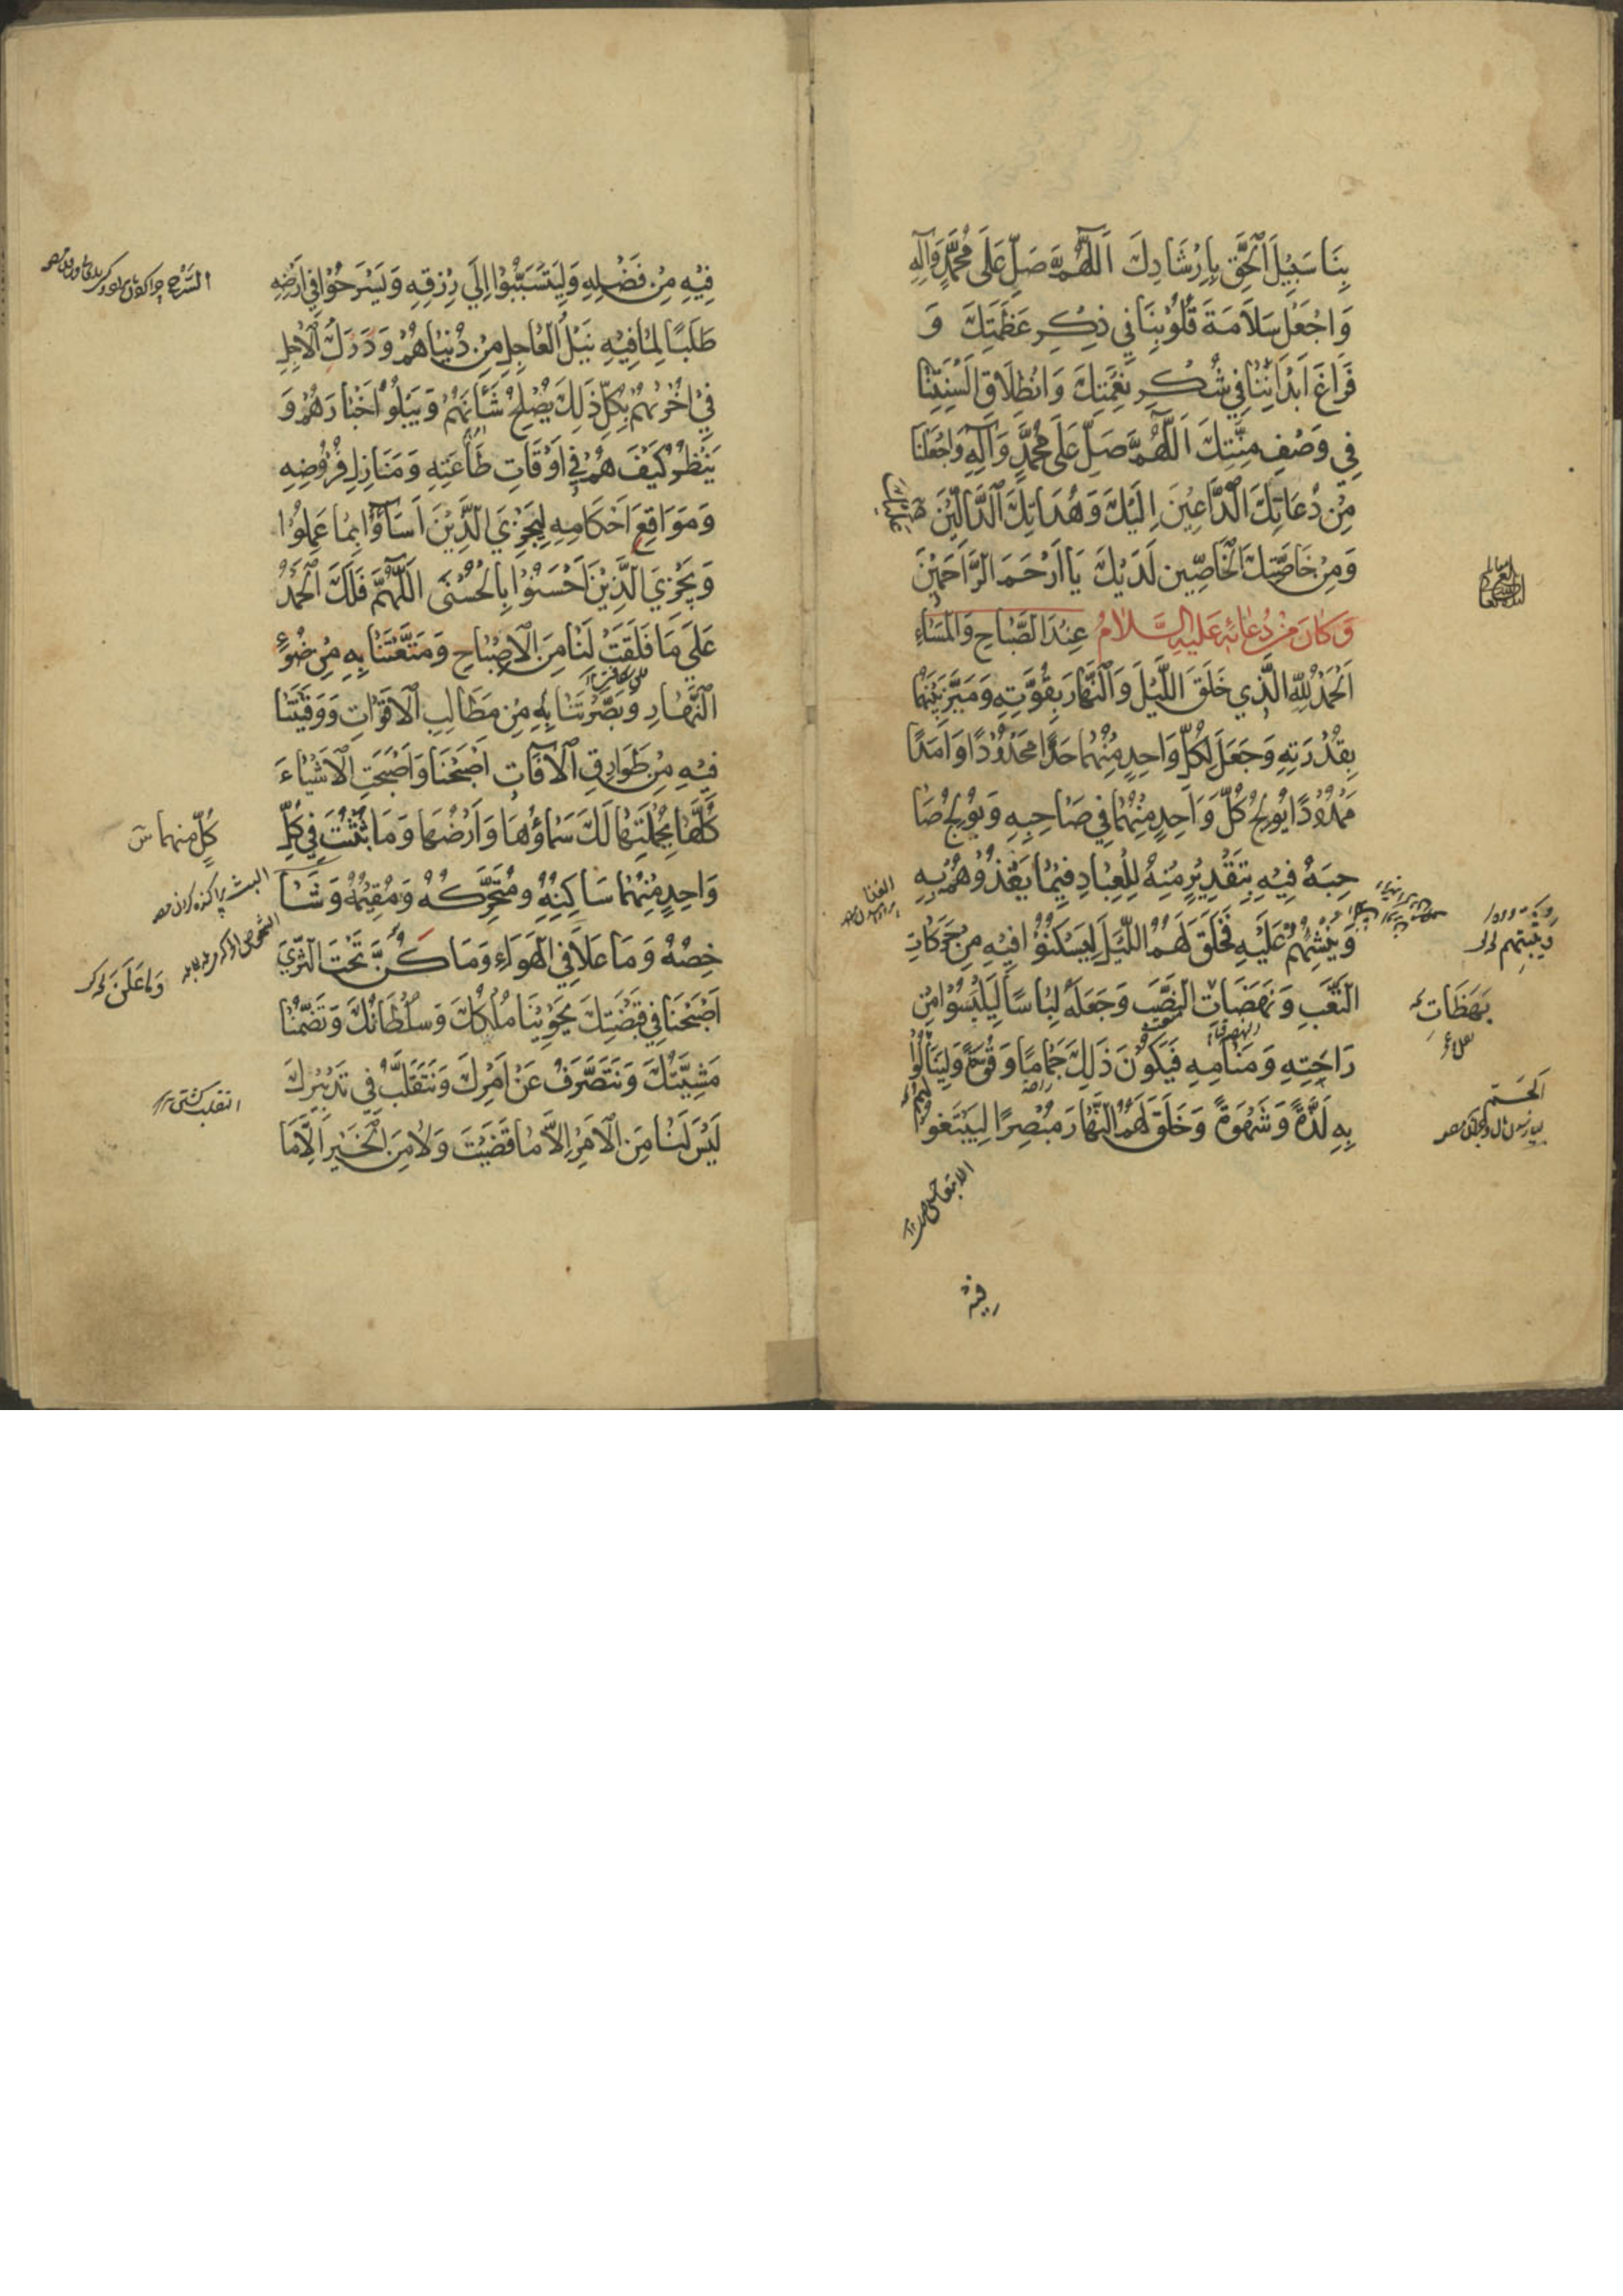 بِنَا سَبِيْلَ الْحَقِّ بِاِرْشَادِكَ اَللّٰهُمَّ صَلِّ عَلَى مُحَمَّدٍ وَآلِهِ
وَاجْعَلْ سَلَامَةَ قُلُوْبِنَا فِي ذِكْرِ عَظَمَتِكَ وَ
فَرَاغَ اَبْدَانِنَا فِي شُكْرِ نِعْمَتِكَ وَانْطِلَاقَ اَلْسِنَتِنَا
فِي وَصْفِ مِنَّتِكَ اَللّٰهُمَّ صَلِّ عَلَى مُحَمَّدٍ وَآلِهِ وَاجْعَلْنَا
مِنْ دُعَاتِكَ الدَّاعِيْنَ اِلَيْكَ وَهُدَاتِكَ الدَّالِّيْنَ
وَمِنْ خَاصَّتِكَ الْخَاصِّيْنَ لَدَيْكَ يَا اَرْحَمَ الرَّاحِمِيْنَ
وَكَانَ مِنْ دُعَائِهِ عَلَيْهِ السَّلَامُ عِنْدَ الصَّبَاحِ وَالْمَسَاءِ
اَلْحَمْدُ لِلّٰهِ الَّذِي خَلَقَ اللَّيْلَ وَالنَّهَارَ بِقُوَّتِهِ وَمَيَّزَ بَيْنَهُمَا
بِقُدْرَتِهِ وَجَعَلَ لِكُلِّ وَاحِدٍ مِنْهُمَا حَدًّا مَحْدُوْدًا وَاَمَدًا
مَمْدُوْدًا يُوْلِجُ كُلَّ وَاحِدٍ مِنْهُمَا فِي صَاحِبِهِ وَيُوْلِجُ صَا
حِبَهُ فِيْهِ بِتَقْدِيْرٍ مِنْهُ لِلْعِبَادِ فِيْمَا يَغْذُوْهُمْ بِهِ
وَيُنْشِئُهُمْ عَلَيْهِ فَخَلَقَ لَهُمُ اللَّيْلَ لِيَسْكُنُوْا فِيْهِ مِنْ حَرَكَاتِ
التَّعَبِ وَنَهَضَاتِ النَّصَبِ وَجَعَلَهُ لِبَاسًا لِيَلْبَسُوْا مِنْ
رَاحَتِهِ وَمَنَامِهِ فَيَكُوْنَ ذَلِكَ جَمَامًا وَقُوَّةً وَلِيَنَالُوْا
بِهِ لَذَّةً وَشَهْوَةً وَخَلَقَ لَهُمُ النَّهَارَ مُبْصِرًا لِيَبْتَغُوْا
بَهَظَاتِ
فيه
فِيْهِ مِنْ فَضْلِهِ وَلِيَتَسَبَّبُوْا اِلَي رِزْقِهِ وَيَسْرَحُوْا فِي اَرْضِهِ
طَلَبًا لِمَا فِيْهِ نَيْلُ الْعَاجِلِ مِنْ دُنْيَاهُمْ وَدَرَكُ الْاٰجِلِ
فِيْ اُخْرٰىهُمْ بِكُلِّ ذَلِكَ يُصْلِحُ شَأْنَهُمْ وَيَبْلُوْا اَخْبَارَهُمْ وَ
يَنْظُرُ كَيْفَ هُمْ فِي اَوْقَاتِ طَاعَتِهِ وَمَنَازِلِ فُرُوْضِهِ
وَمَوَاقِعِ اَحْكَامِهِ لِيَجْزِيَ الَّذِيْنَ اَسَآؤُا بِمَا عَمِلُوْا
وَيَجْزِيَ الَّذِيْنَ اَحْسَنُوْا بِالْحُسْنَى اَللّٰهُمَّ فَلَكَ الْحَمْدُ
عَلَي مَا فَلَقْتَ لَنَا مِنَ الْاِصْبَاحِ وَمَتَّعْتَنَا بِهِ مِنْ ضَوْءِ
النَّهَارِ وَبَصَّرْتَنَا بِهِ مِنْ مَطَالِبِ الْاَقْوَاتِ وَوَقَيْتَنَا
فِيْهِ مِنْ طَوَارِقِ الْآفَاتِ اَصْبَحْنَا وَاَصْبَحَتِ الْاَشْيَاءُ
كُلُّهَا بِجُمْلَتِهَا لَكَ سَمَاؤُهَا وَاَرْضُهَا وَمَا بَثَثْتَ فِي كُلِّ
وَاحِدٍ مِنْهُمَا سَاكِنُهُ وَمُتَحَرِّكُهُ وَمُقِيْمُهُ وَشَا
خِصُهُ وَمَا عَلَا فِي الْهَوَاءِ وَمَا كَنَّ تَحْتَ الثَّرَيَ
اَصْبَحْنَا فِي قَبْضَتِكَ يَحْوِيْنَا مُلْكُكَ وَسُلْطَانُكَ وَتَضُمُّنَا
مَشِيَّتُكَ وَنَتَصَرَّفُ عَنْ اَمْرِكَ وَنَتَقَلَّبُ فِي تَدْبِيْرِكَ
لَيْسَ لَنَا مِنَ الْاَمْرِ اِلَّا مَا قَضَيْتَ وَلَا مِنَ الْخَيْرِ اِلَّا مَا
كُلٍّ مِنْهُمَا